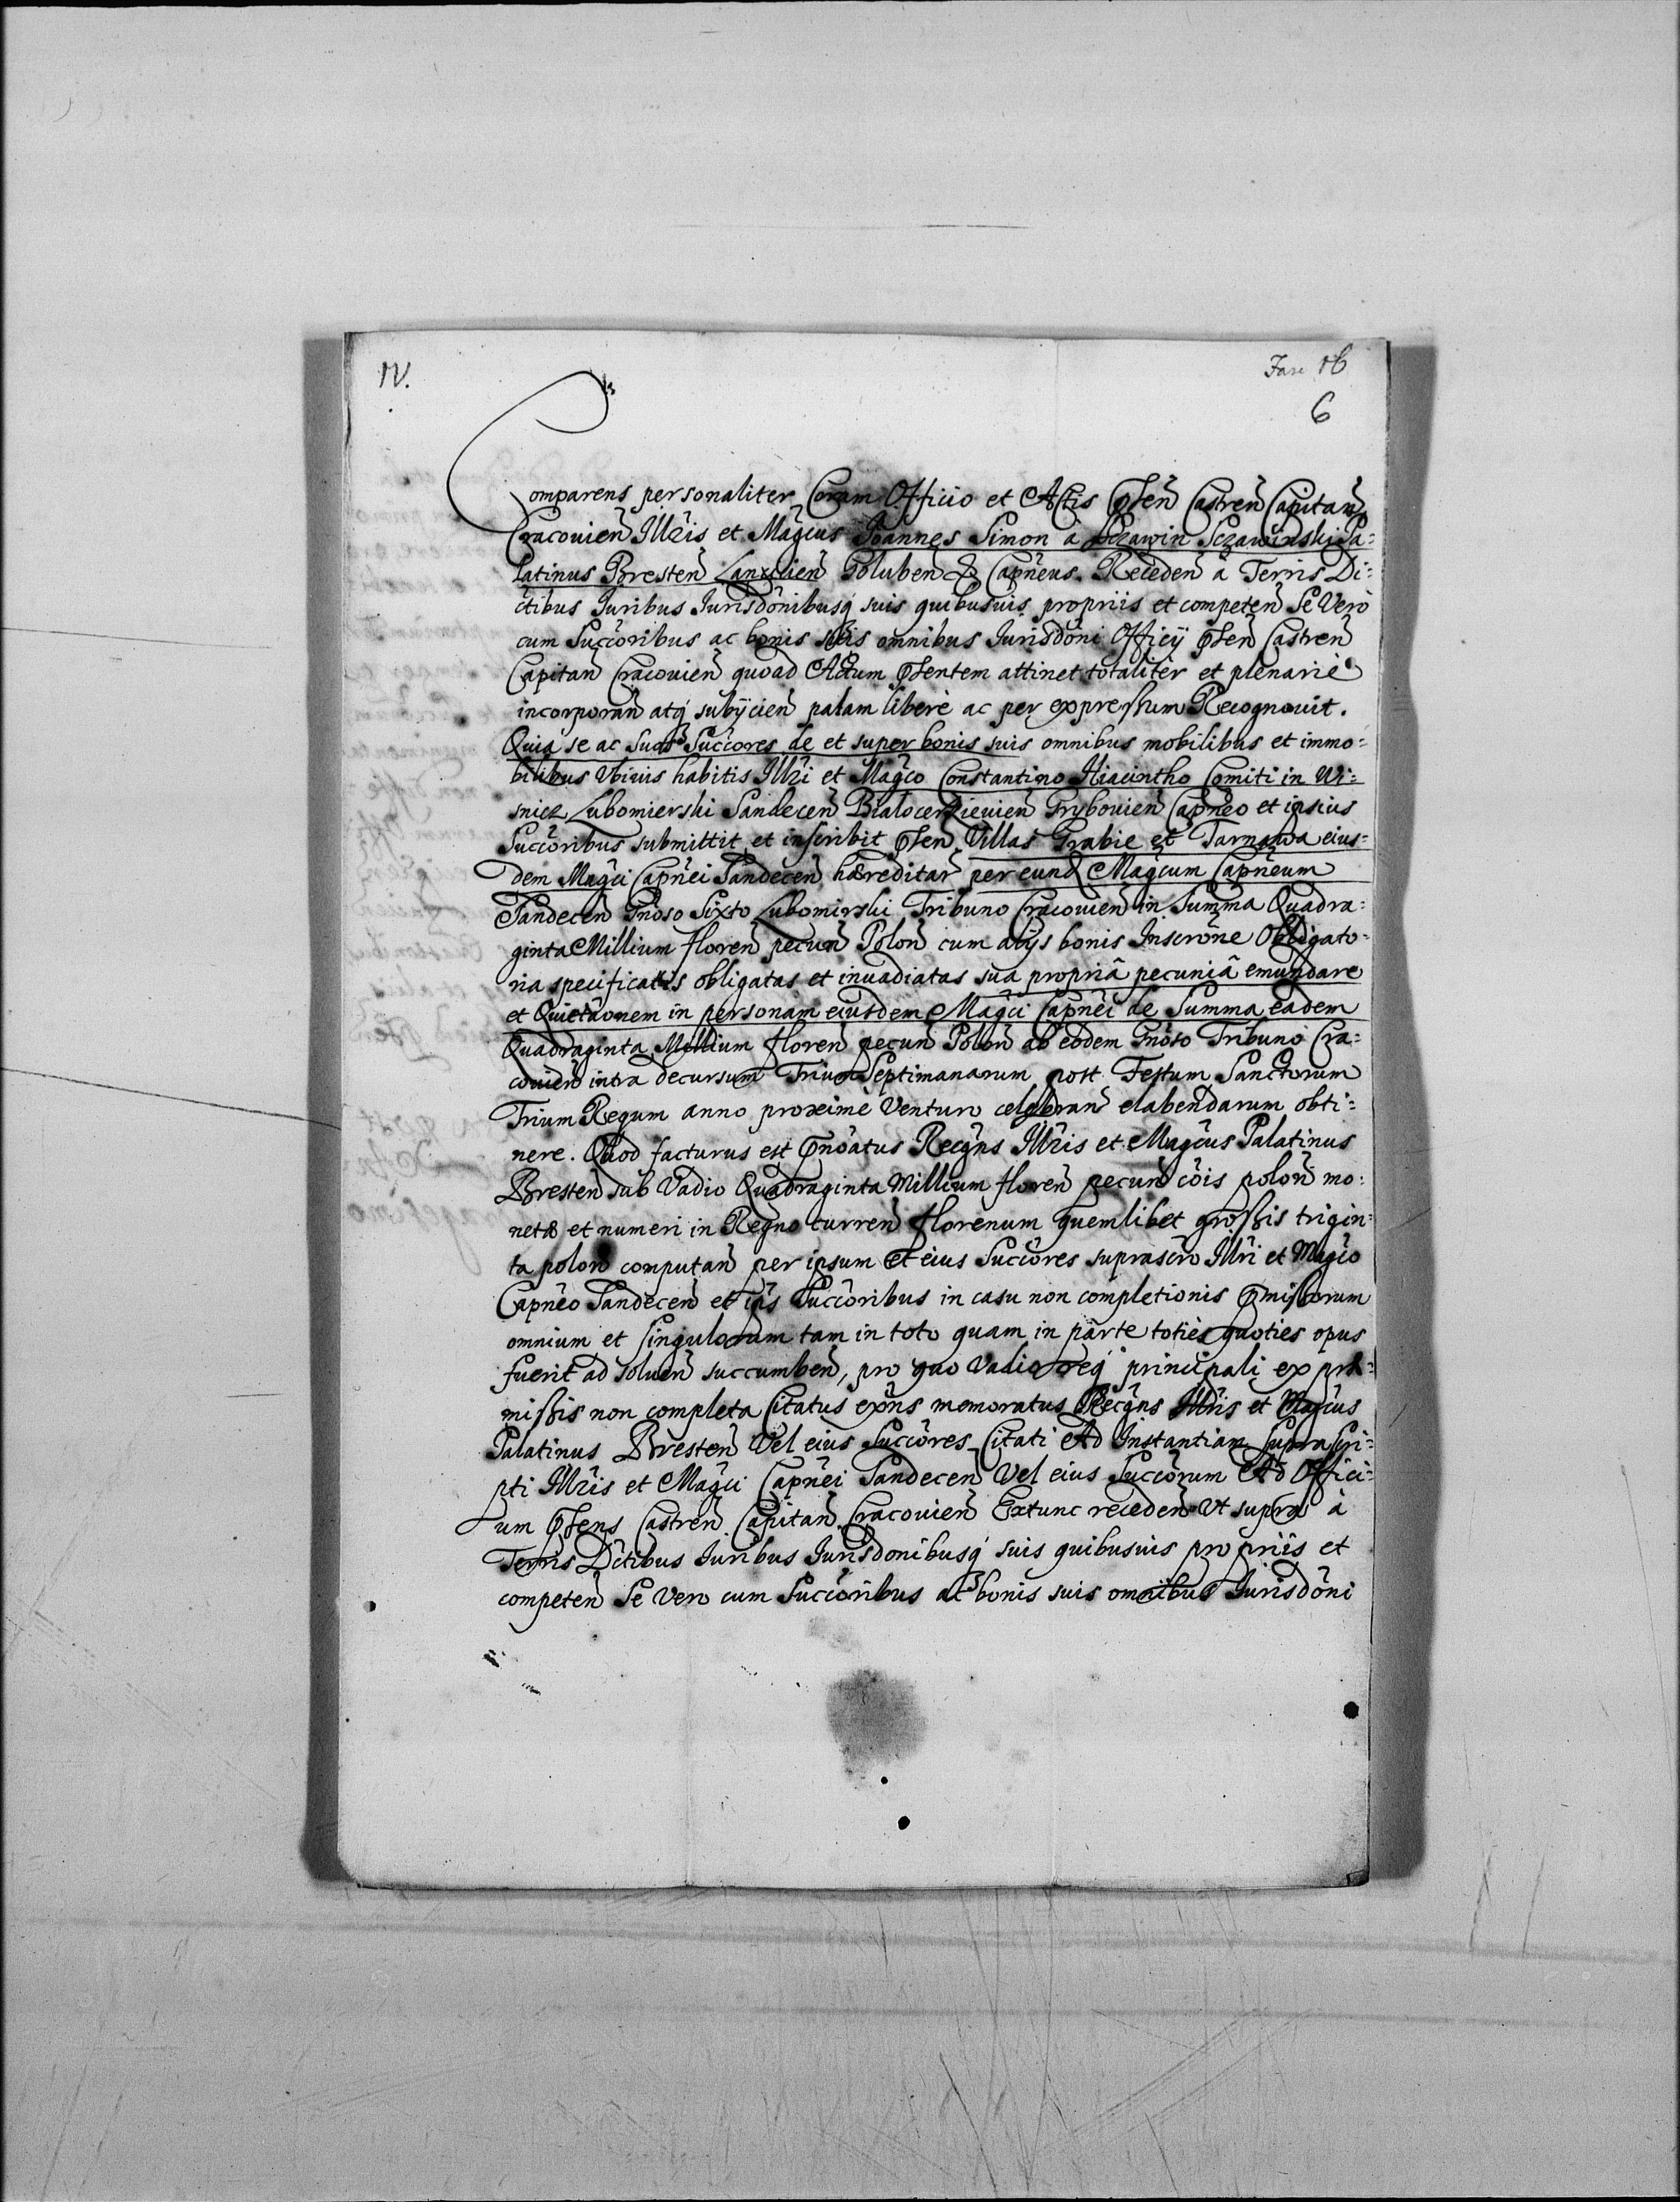 IV.
Fasc 16
6
Comparens personaliter Coram Officio et Actis Pñsen̄ Castren̄ Capitan̄
Cracouien̄ Illr̄is et Mag̃cus Joannes Simon à Sczawin Sczawinski Pa=
latinus Bresten̄ Lanxicien̄ Goluben̄ & Capn̄eus. Receden̄ à Terris Di=
ctibus Juribus Jurisdōnibusq́ suis quibusuis propriis et competen̄ Se Verò
cum Succ̄oribus ac bonis suis omnibus Jurisdōni Officÿ Pñsen̄ Castren̄
Capitan̄ Cracouien̄ quoad Actum Pñsentem attinet totaliter et plenariè
incorporan̄ atq́ subÿcien̄ palam liberè ac per expressum Recognouit.
Quia se ac Suos Succ̄ores de et super bonis suis omnibus mobilibus et immo=
bilibus Vbiuis habitis Illr̄i et Mag̃co Constantino Hiacintho Comiti in Wi=
snicz Lubomierski Sandecen̄ Bialocerkieuien̄ Grybouien̄ Capn̄eo et ipsius
Succ̄oribus submittit et inscribit Pñsen̄ Villas Grabie et Tarnawa eius=
dem Mag̃ci Capn̄ei Sandecen̄ hæreditar̄ per eund Mag̃cum Capn̄eum
Sandecen̄ Gn̄oso Sixto Lubomirski Tribuno Cracouien̄ in Summa Quadra=
ginta Millium floren̄ pecun̄ Polon̄ cum alijs bonis Inscrōne Obligato=
ria specificatis obligatas et inuadiatas sua propriâ pecuniâ emundare
et Quietāonem in personam eiusdem Mag̃ci Capn̄ei de Summa eadem
Quadraginta Millium floren̄ pecun̄ Polon̄ ab eodem Gn̄oso Tribuno Cra=
couien̄ intra decursum Trium Septimanarum post Festum Sanctorum
Trium Regum anno proximè Venturo celebran̄ elabendarum obti=
nere. Quod facturus est Pn̄oātus Recgn̄s Illr̄is et Mag̃cus Palatinus
Bresten̄ sub Vadio Quadraginta Millium floren̄ pecun̄ cōis polon̄ mo=
netæ et numeri in Regno curren̄ florenum quemlibet grossis trigin=
ta polon̄ computan̄ per ipsum et eius Succ̄ores suprascr̄o Illr̄i et Mag̃co
Capn̄eo Sandecen̄ et ip̄s Succ̄oribus in casu non completionis Pmissorum
omnium et singulorum tam in toto quam in parte toties quoties opus
fuerit ad soluen̄ succumben̄, pro quo Vadio req́ principali ex præ=
missis non completa Citatus exn̄s memoratus Recgn̄s Illr̄is et Mag̃cus
Palatinus Bresten̄ Vel eius Succ̄ores Citati Ad Instantiam Suprascri=
pti Illr̄is et Mag̃ci Capn̄ei Sandecen̄ Vel eius Succ̄orum Ad Offici=
um Pñsens Castren̄ Capitan̄ Cracouien̄ Extunc receden̄ Vt supra à
Terris Dictibus Juribus Jurisdonibusq́ suis quibusuis propriis et
competen̄ Se Vero cum Succ̄oribus ac bonis suis omnibus Jurisdōni